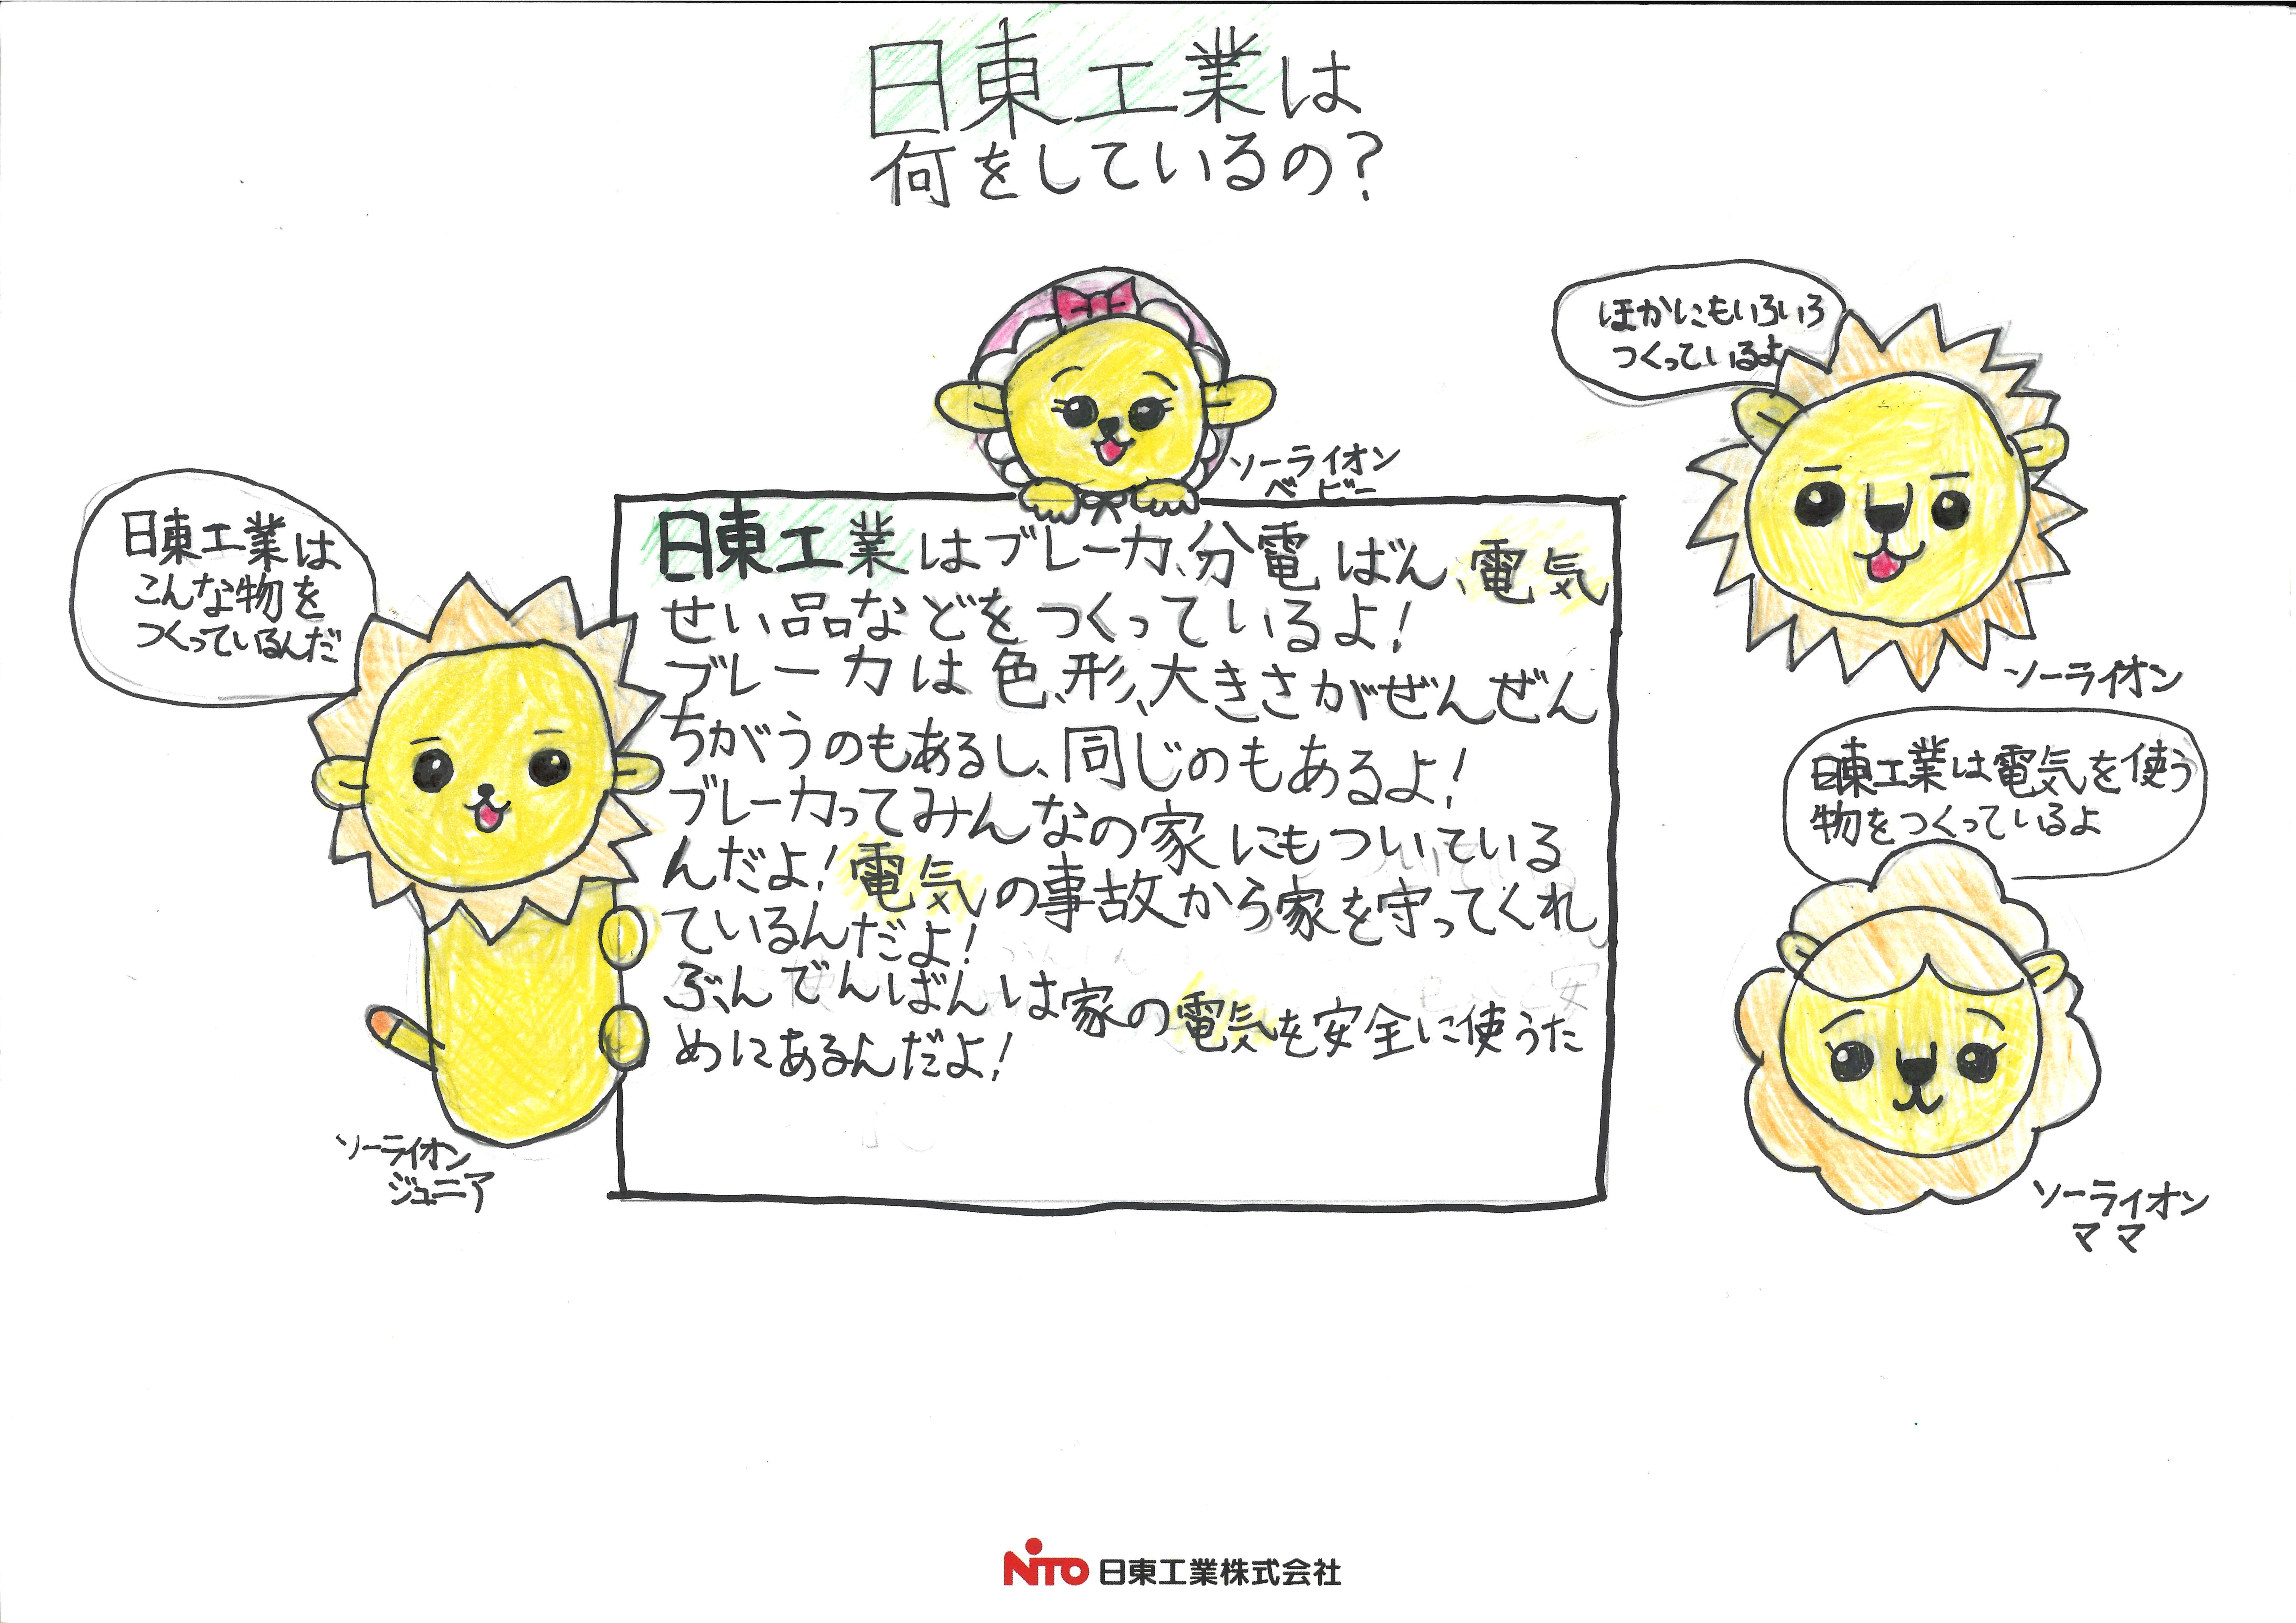 日東工業は
何をしているの?
ソーライオン
ベビー
ほかにもいろいろ
つくっているよ
ソーライオン
日東工業は
こんな物を
つくっているんだ
ソーライオン
ジュニア
日東工業はブレーカ、分電ばん、電気
せい品などをつくっているよ!
ブレーカは色、形、大きさがぜんぜん
ちがうのもあるし、同じのもあるよ!
ブレーカってみんなの家にもついている
んだよ!電気の事故から家を守ってくれ
ているんだよ!
ぶんでんばんは家の電気を安全に使うた
めにあるんだよ!
日東工業は電気を使う
物をつくっているよ
ソーライオン
ママ
NITO 日東工業株式会社